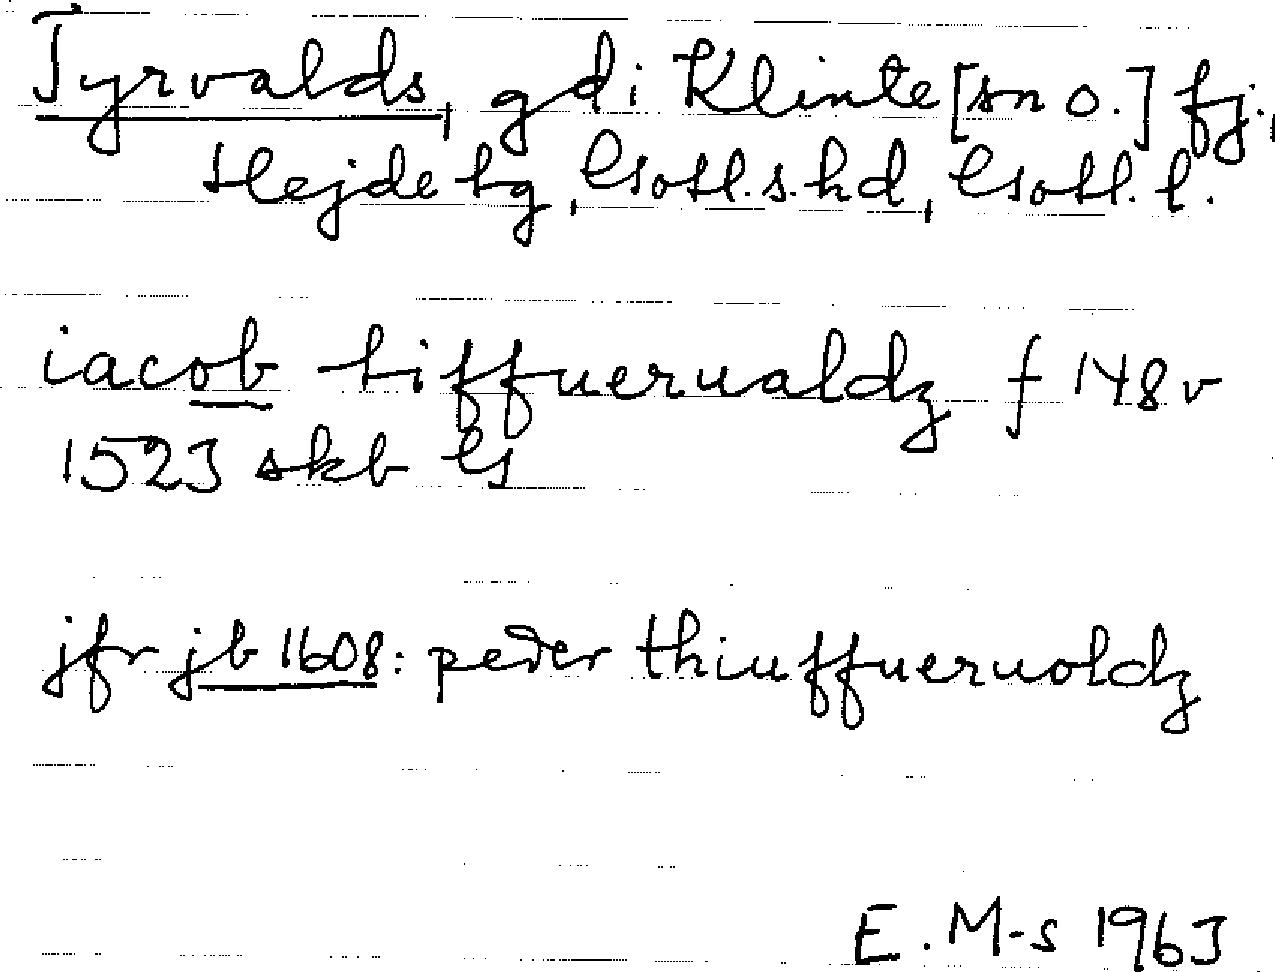 Tyrvalds, gd i Klinte [sn o.] fj.,
Hejde tg, Gotl. s. hd, Gotl. l.
iacob tiffuerualdz f 148 v
1523 skb G
jfr jb 1608: peder thiuffueruoldz
E. M-s 1963